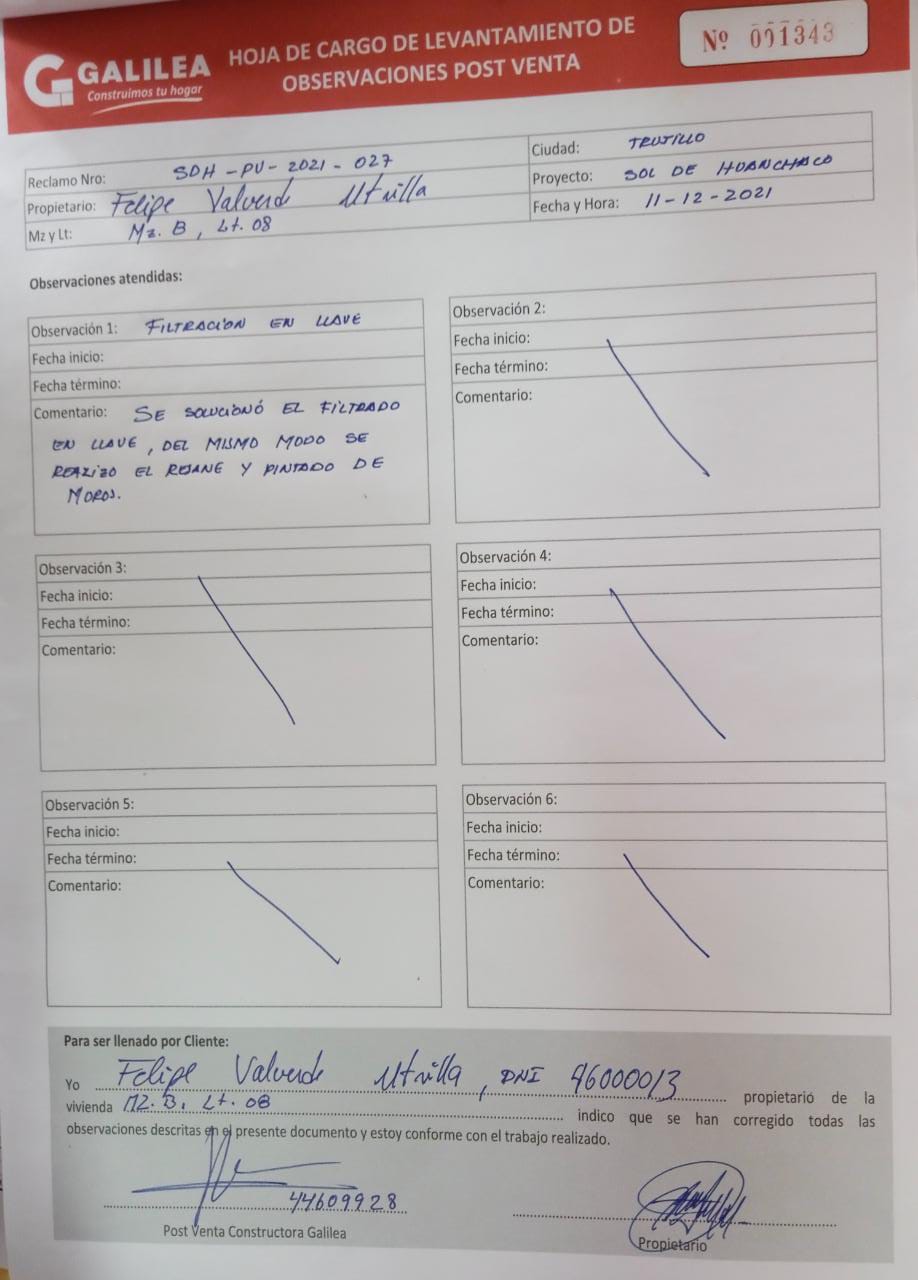 GALILEA
Construimos tu hogar
HOJA DE CARGO DE LEVANTAMIENTO DE
OBSERVACIONES POST VENTA
Nº 001343
Reclamo Nro: SDH-PV-2021-027
Propietario: Felipe Valverde Utrilla
Mz y Lt: Mz. B, Lt. 08
Ciudad: TRUJILLO
Proyecto: SOL DE HUANCHACO
Fecha y Hora: 11-12-2021
Observaciones atendidas:
Observación 1: FILTRACIÓN EN LLAVE
Fecha inicio:
Fecha término:
Comentario: SE SOLUCIONÓ EL FILTRADO
EN LLAVE, DEL MISMO MODO SE
REALIZO EL RESANE Y PINTADO DE
MUROS.
Observación 2:
Fecha inicio:
Fecha término:
Comentario:
Observación 3:
Fecha inicio:
Fecha término:
Comentario:
Observación 4:
Fecha inicio:
Fecha término:
Comentario:
Observación 5:
Fecha inicio:
Fecha término:
Comentario:
Observación 6:
Fecha inicio:
Fecha término:
Comentario:
Para ser llenado por Cliente:
Yo Felipe Valverde Utrilla, DNI 46000013 propietario de la
vivienda MZ. B, Lt. 08 indico que se han corregido todas las
observaciones descritas en el presente documento y estoy conforme con el trabajo realizado.
44609928
Post Venta Constructora Galilea
Propietario